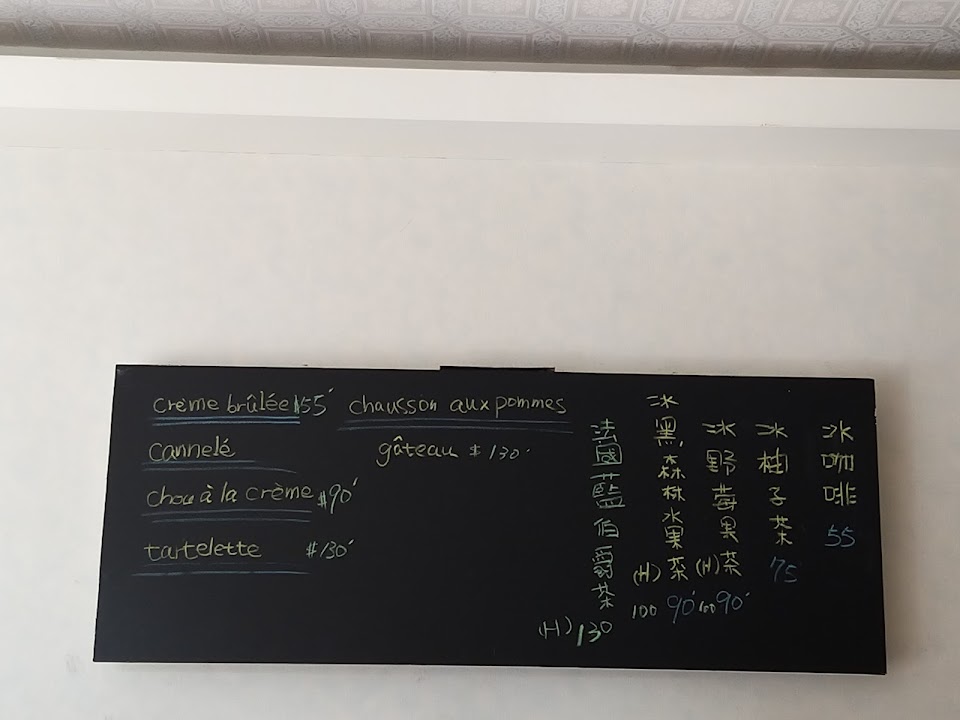 crème brûlée $55
cannelé
chou à la crème $90
tartelette $130
chausson aux pommes
gâteau $130
冰咖啡 55
冰柚子茶 75
冰野莓果茶 90 (H) 100
冰黑森林水果茶 90 (H) 100
法國藍伯爵茶 (H) 130